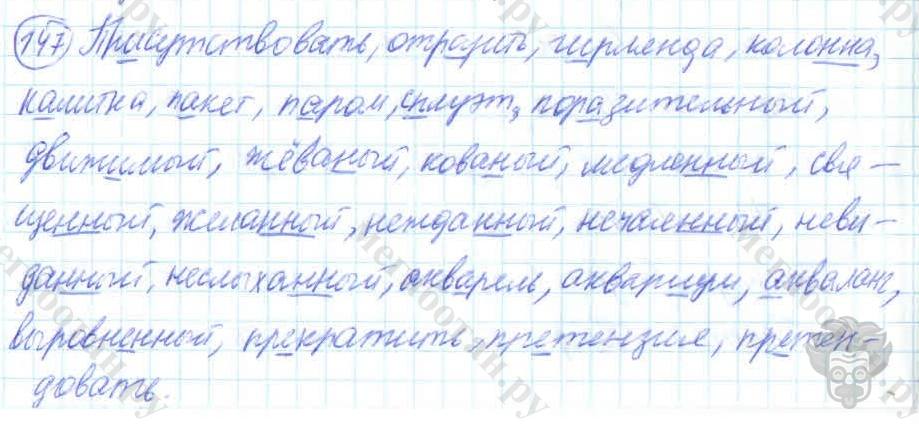 147 Присутствовать, отразить, гирлянда, колонна,
калитка, пакет, паром, силуэт, поразительный,
движимый, жёваный, кованый, медленный, свя-
щенный, желанный, нежданный, нечаянный, неви-
данный, неслыханный, акварель, аквариум, акваланг,
выровненный, прекратить, претензия, претен-
довать.